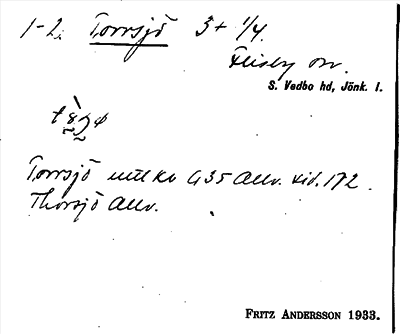 1-2. Torrsjö 3 + 1/4.
Flisby sn.
S. Vedbo hd, Jönk. l.
Torrsjö mtl kv G 35 Allv. sid. 172.
Thorsjö Allv.
FRITZ ANDERSSON 1933.